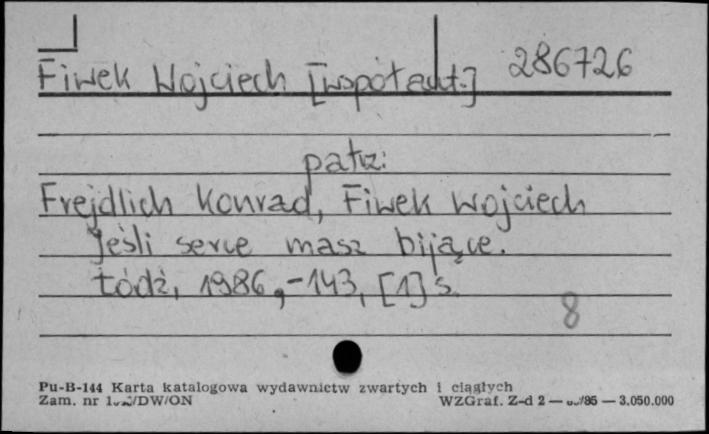 Fiwek Wojciech [współaut.] 286726
patrz:
Frejdlich Konrad, Fiwek Wojciech
Jeśli serce masz bijące.
Łódź, 1986, - 143, [1] s.
8
Pu-B-144 Karta katalogowa wydawnictw zwartych i ciągłych
Zam. nr /DW/ON WZGraf. Z-d 2 — /86 — 3.050.000